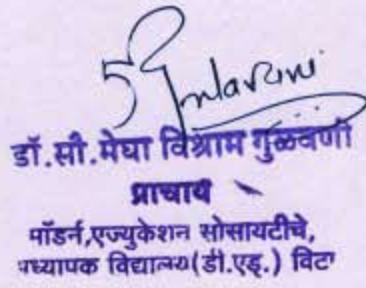 डॉ.सौ.मेघा विश्राम गुळवणी
प्राचार्य
मॉडर्न,एज्युकेशन सोसायटीचे,
अध्यापक विद्यालय(डी.एड्.) विटा